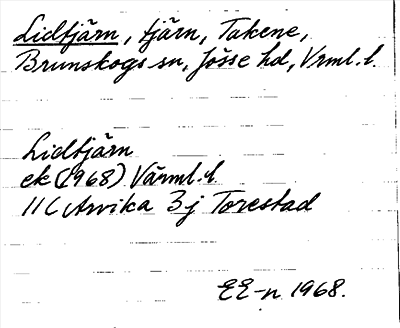 Lidtjärn, tjärn, Takene,
Brunskogs sn, Jösse hd, Vrml. l.
Lidtjärn
ek (1968) Värml. l.
11C Arvika 3j Torestad
EE-n 1968.